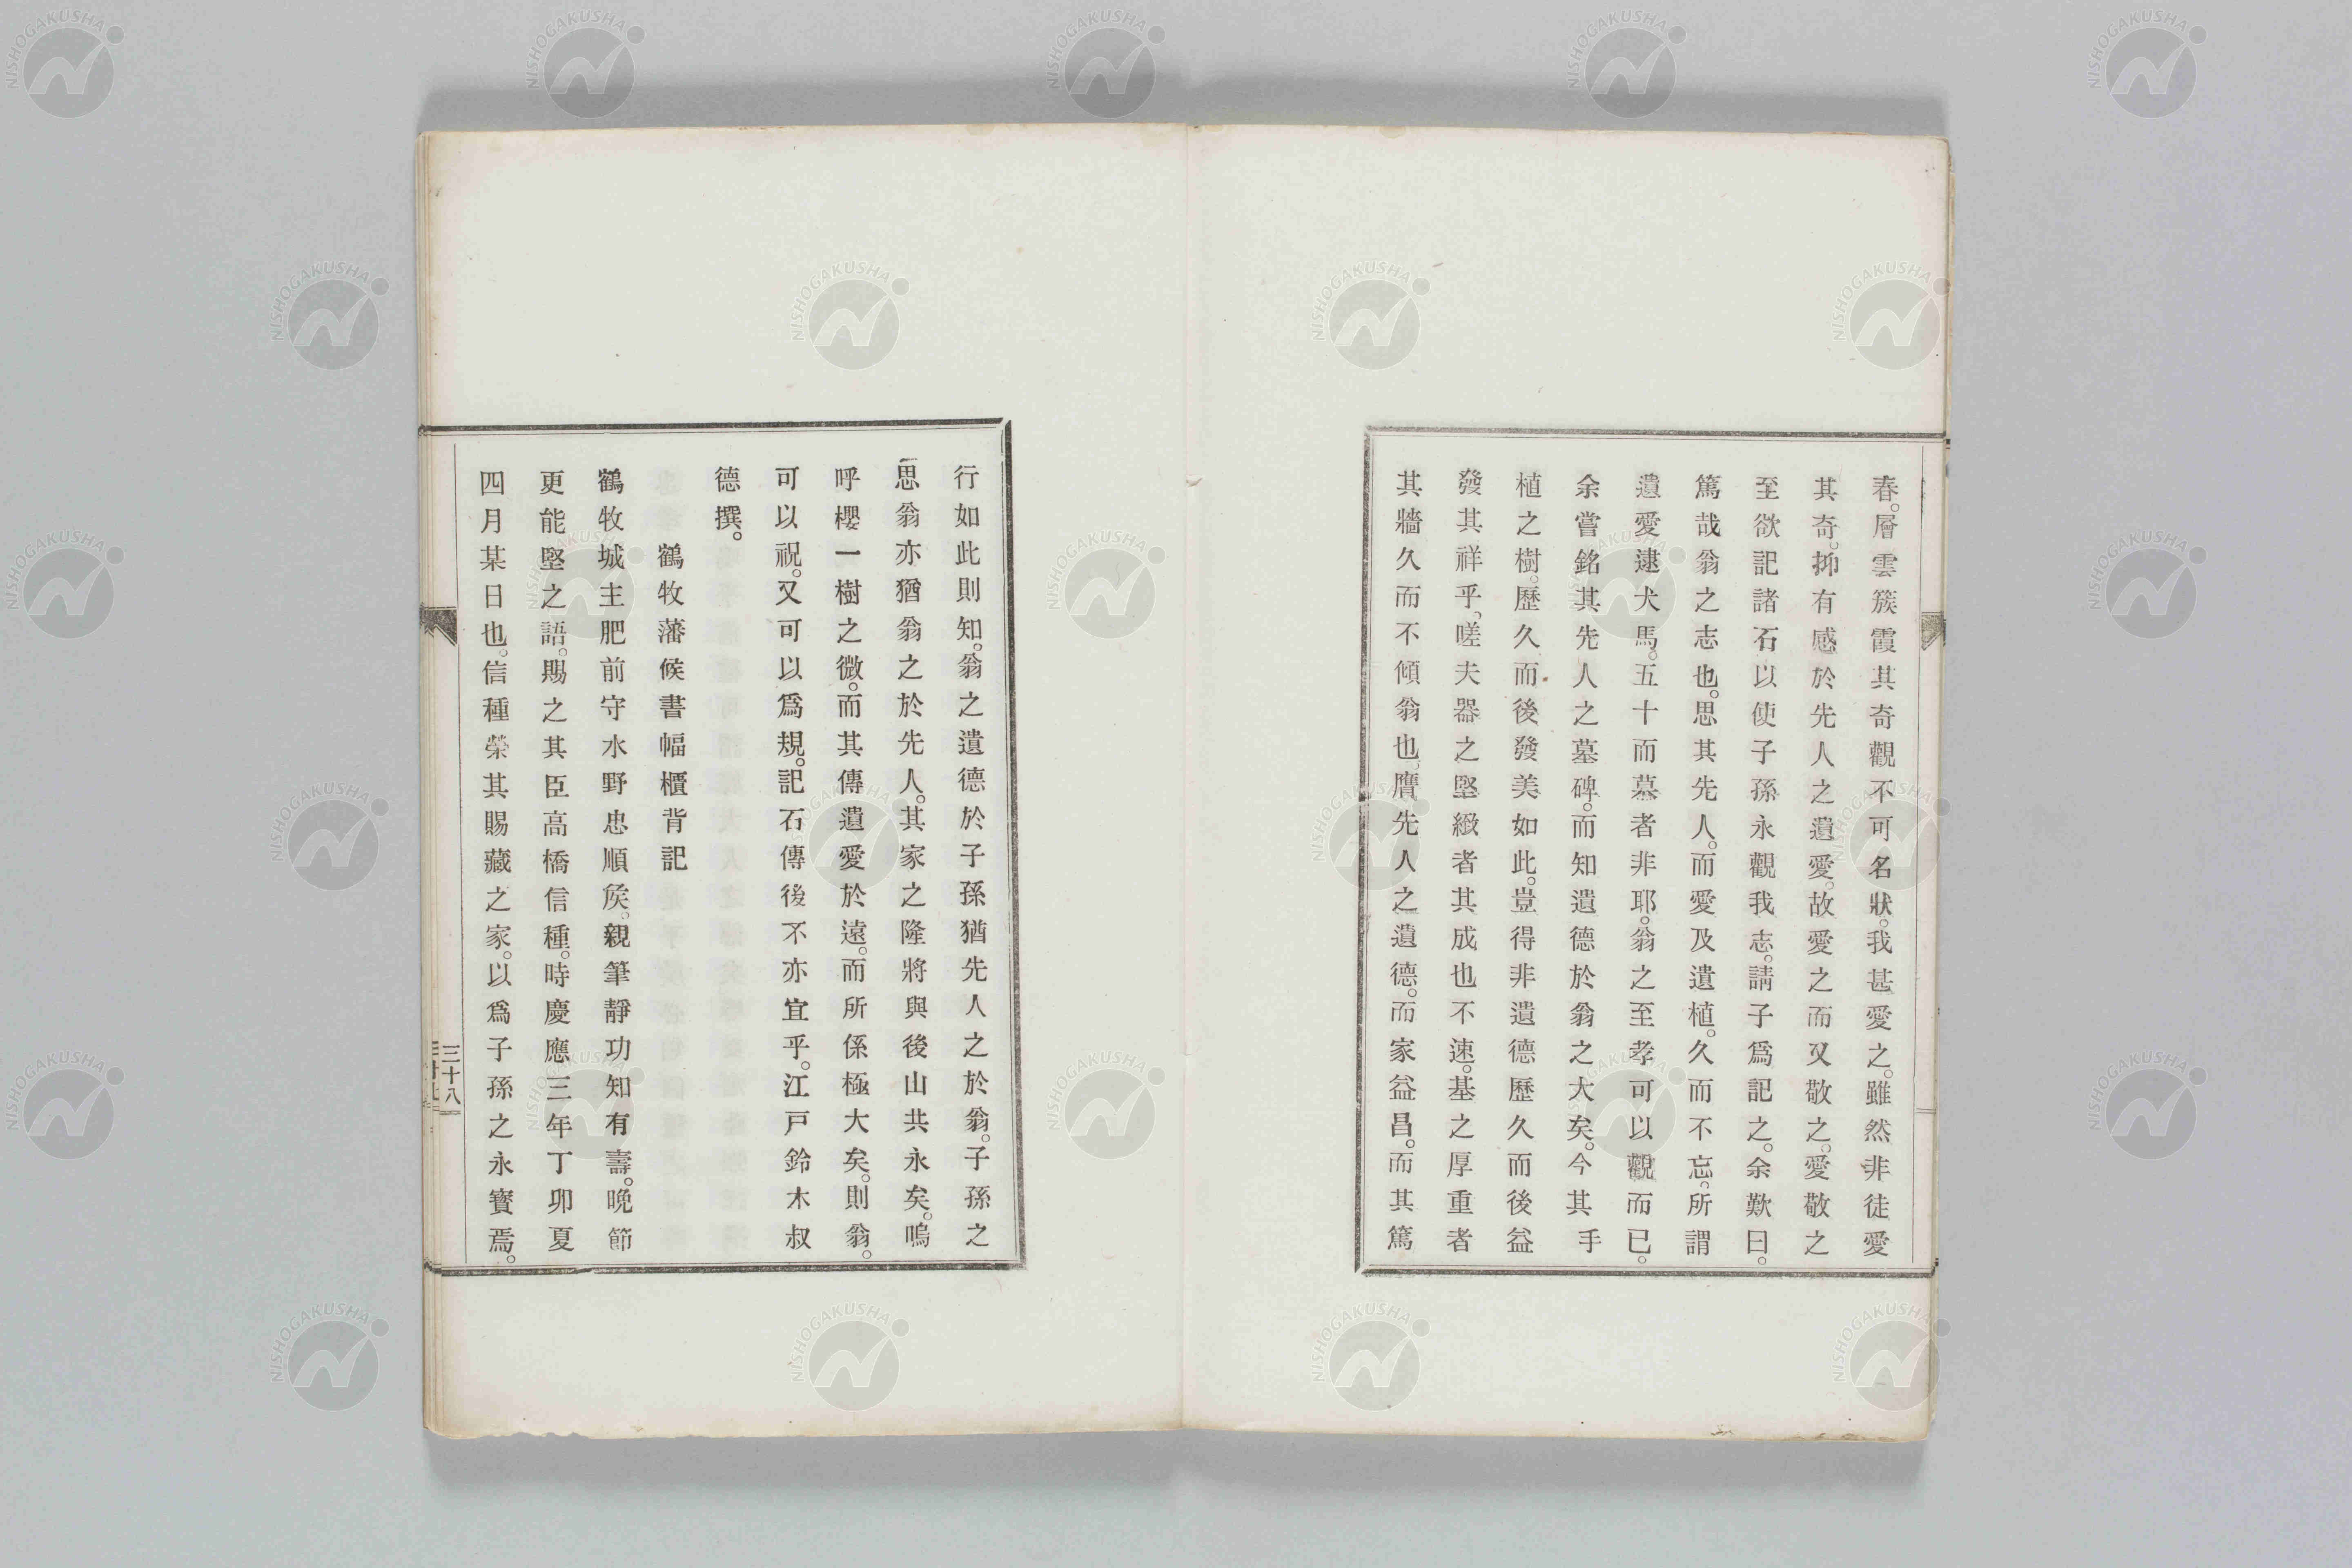 春。層雲簇霞其奇觀不可名狀。我甚愛之。雖然非徒愛
其奇。抑有感於先人之遺愛。故愛之而又敬之。愛敬之
至欲記諸石以使子孫永觀我志。請子爲記之。余歎曰。
篤哉翁之志也。思其先人。而愛及遺植。久而不忘。所謂
遺愛逮犬馬。五十而慕者非耶。翁之至孝可以觀而已。
余嘗銘其先人之墓碑。而知遺德於翁之大矣。今其手
植之樹。歷久而後發美如此。豈得非遺德歷久而後益
發其祥乎。嗟夫器之堅緻者其成也不速。基之厚重者
其牆久而不傾翁也。膺先人之遺德。而家益昌。而其篤
行如此則知。翁之遺德於子孫猶先人之於翁。子孫之
思翁亦猶翁之於先人。其家之隆將與後山共永矣。嗚
呼櫻一樹之微。而其傳遺愛於遠。而所係極大矣。則翁。
可以祝。又可以爲規。記石傳後不亦宜乎。江戸鈴木叔
德撰。
鶴牧藩候書幅櫃背記
鶴牧城主肥前守水野忠順矦。親筆靜功知有壽。晩節
更能堅之語。賜之其臣高橋信種。時慶應三年丁卯夏
四月某日也。信種榮其賜藏之家。以爲子孫之永寶焉。
三十八
三十七
NISHOGAKUSHA